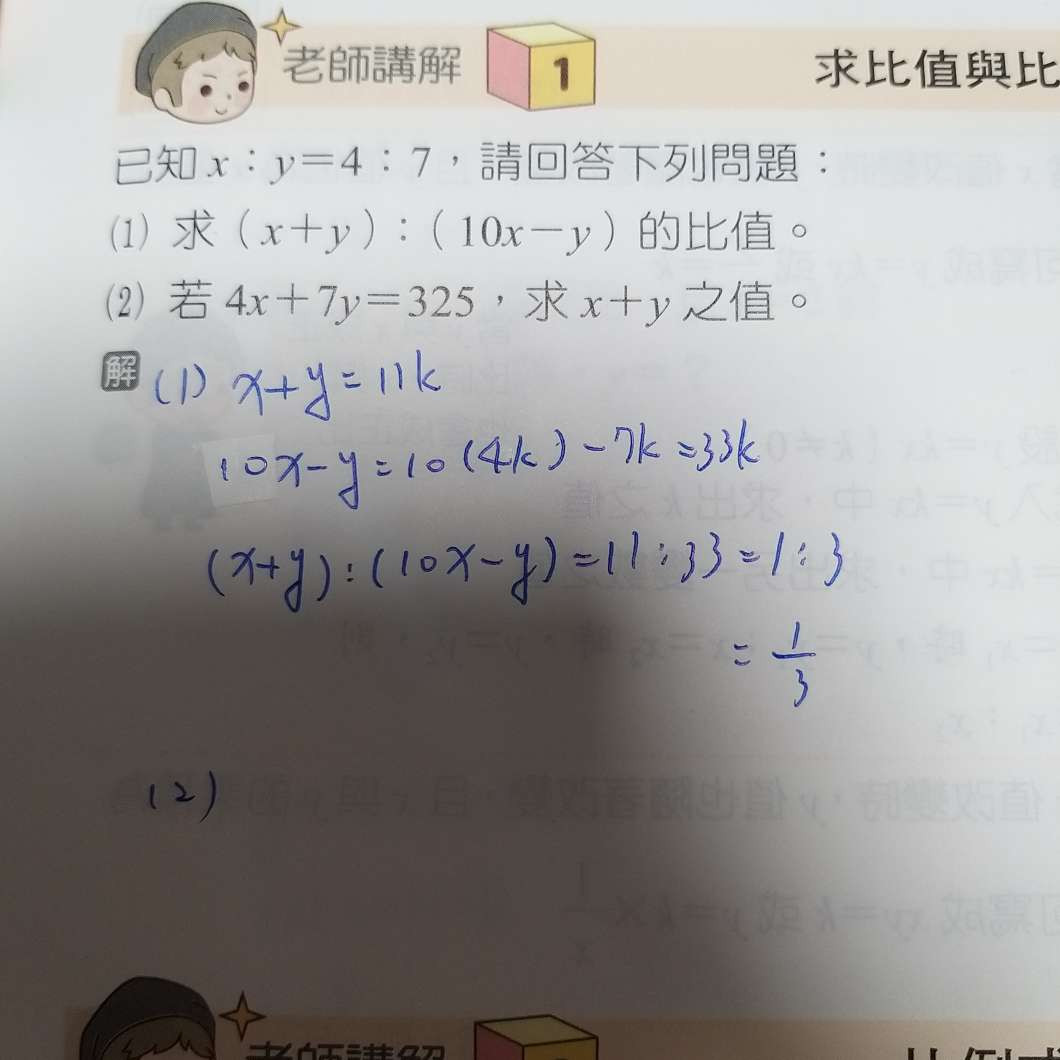 老師講解 1 求比值與比
已知 x：y＝4：7，請回答下列問題：
⑴ 求（x＋y）：（10x－y）的比值。
⑵ 若 4x＋7y＝325，求 x＋y 之值。
解 (1) x+y=11k
10x-y=10(4k)-7k=33k
(x+y):(10x-y)=11:33=1:3
=1/3
(2)
老師講解